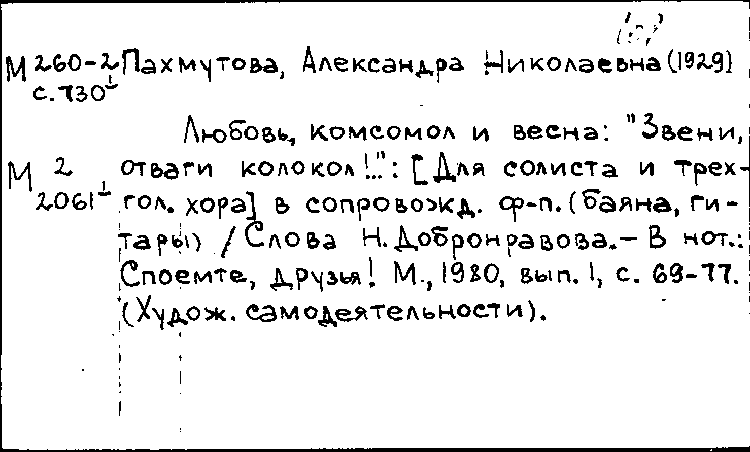 М 260-2 Пахмутова, Александра Николаевна (1929)
с. 730
Любовь, комсомол и весна: "Звени,
М 2 отваги колокол!..": [Для солиста и трех-
2061 гол. хора] в сопровожд. ф-п. (баяна, ги-
тары) / Слова Н. Добронравова. - В нот.:
Споемте, друзья! М., 1980, вып. 1, с. 69-77.
(Худож. самодеятельности).